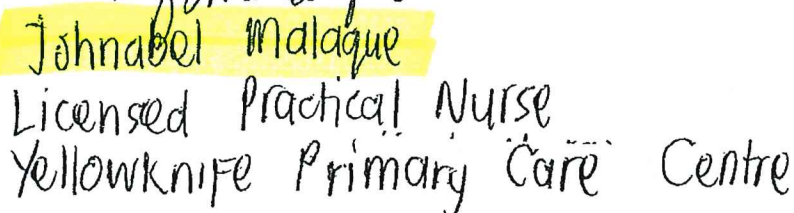 Johnabel Malaque
Licensed Practical Nurse
Yellowknife Primary Care Centre